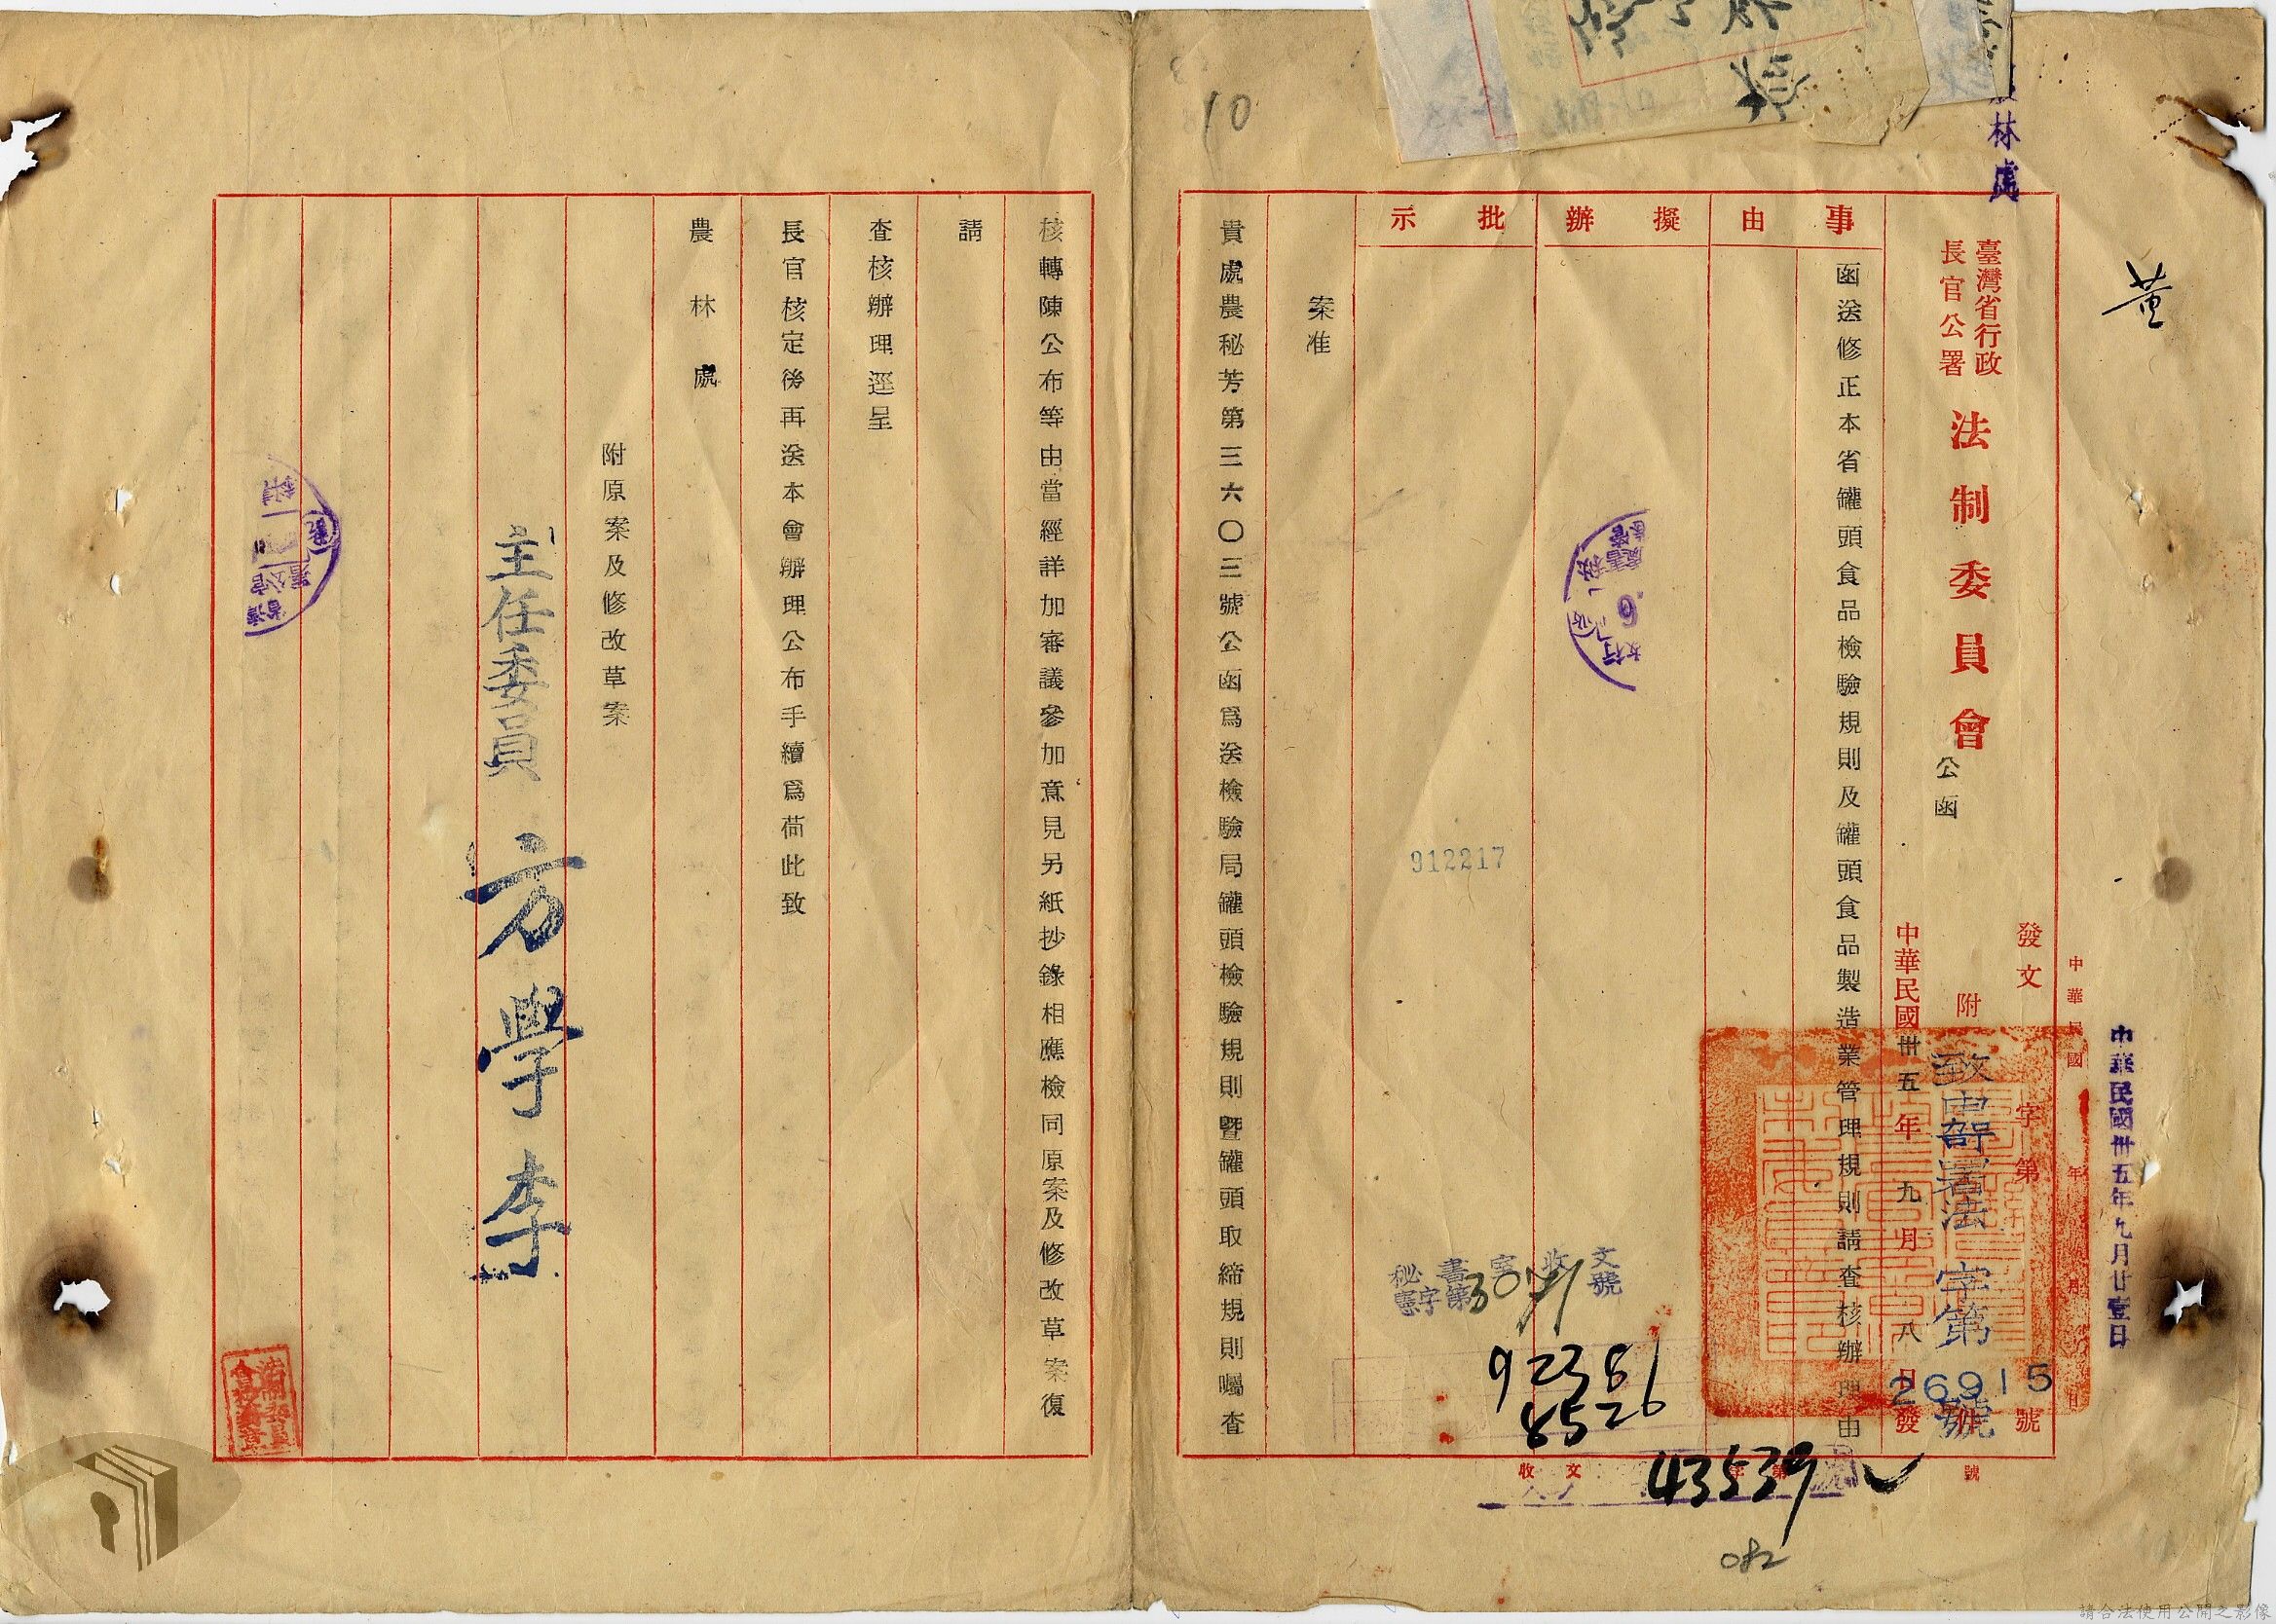 農林處
黃
中華民國卅五年九月廿壹日
中華民國 年 月 日
發文 字第 號
臺灣省行政長官公署
法制委員會
公函
附 件
致申哿署法字第 號
26915
中華民國卅五年九月 八日發
事由
擬辦
批示
函送修正本省罐頭食品檢驗規則及罐頭食品製造業管理規則請查核辦理由
912217
秘書室收文
憲字第 號
92386
8526
收文 字第 號
43539
082
10
案准
貴處農秘芳第三六〇三號公函爲送檢驗局罐頭檢驗規則暨罐頭取締規則囑查
核轉陳公布等由當經詳加審議參加意見另紙抄錄相應檢同原案及修改草案復
請
查核辦理逕呈
長官核定後再送本會辦理公布手續爲荷此致
農林處
附原案及修改草案
主任委員 方學李
請合法使用公開之影像